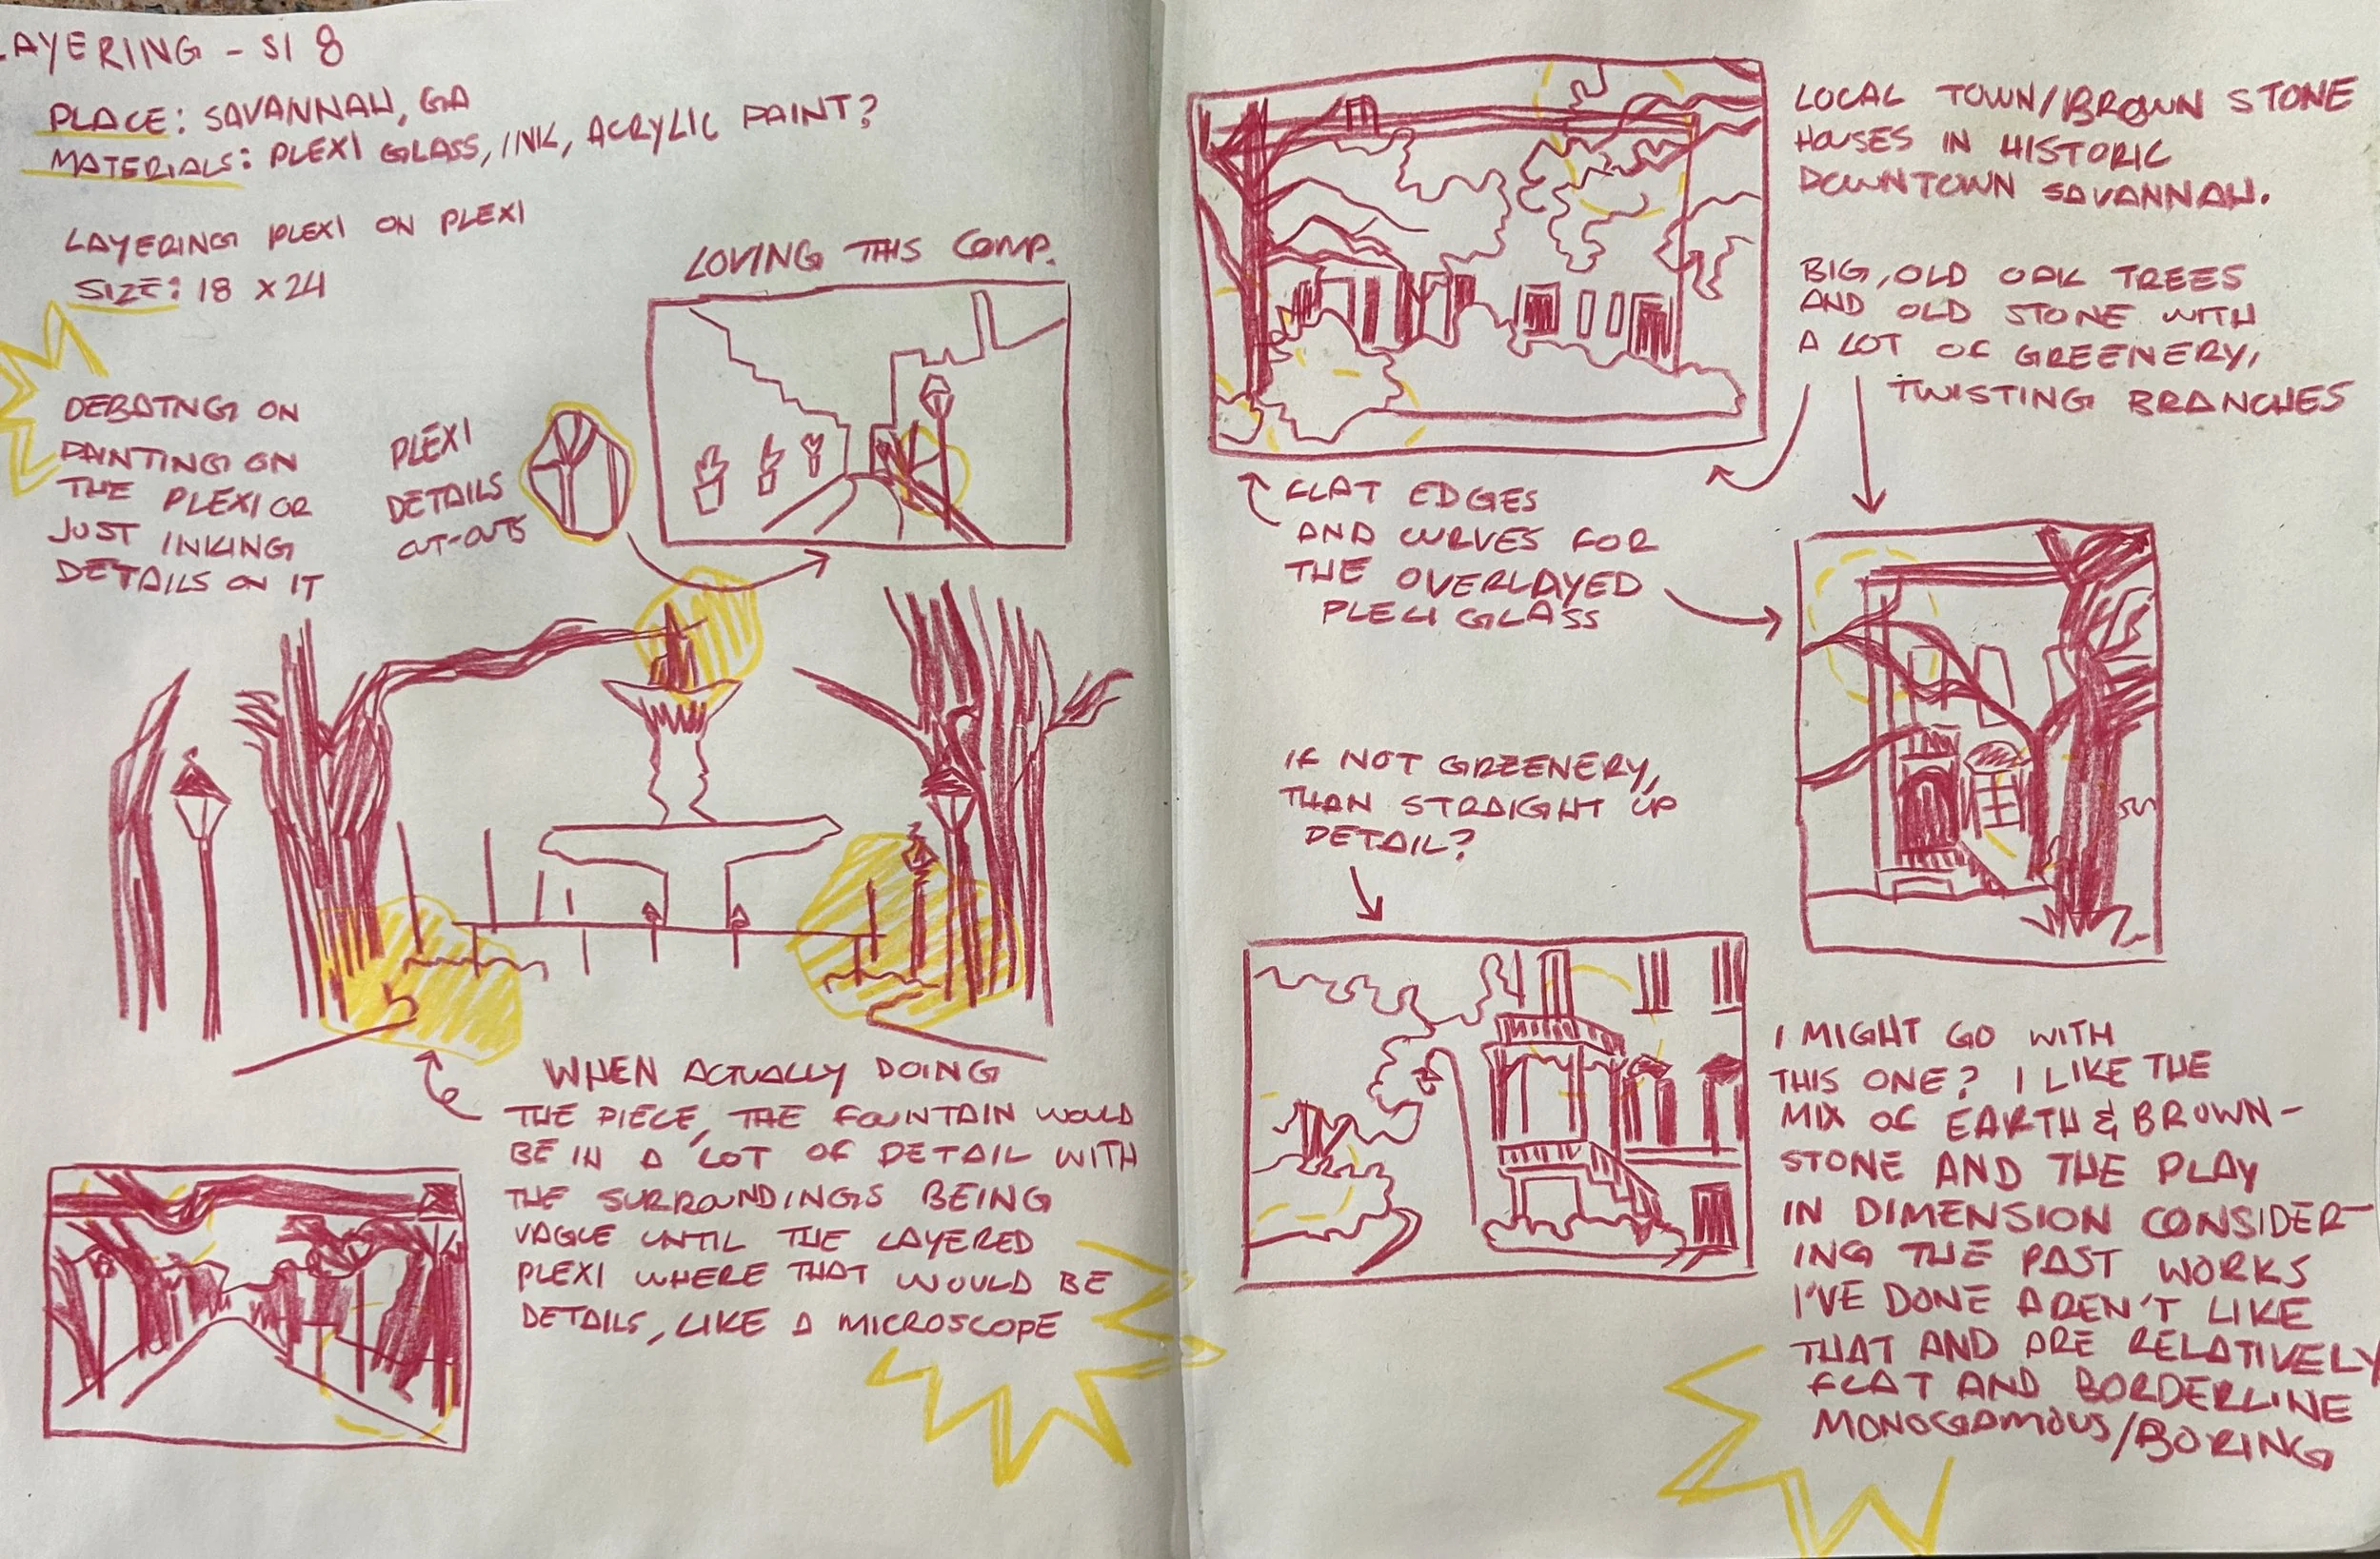 LAYERING - SI 8
PLACE: SAVANNAH, GA
MATERIALS: PLEXI GLASS, INK, ACRYLIC PAINT?
LAYERING PLEXI ON PLEXI
SIZE: 18 x 24
LOVING THIS COMP.
DEBATNG ON
PAINTING ON
THE PLEXI OR
JUST INKING
DETAILS ON IT
PLEXI
DETAILS
CUT-OUTS
WHEN ACTUALLY DOING
THE PIECE, THE FOUNTAIN WOULD
BE IN A LOT OF DETAIL WITH
THE SURROUNDINGS BEING
VAGUE UNTIL THE LAYERED
PLEXI WHERE THAT WOULD BE
DETAILS, LIKE A MICROSCOPE
LOCAL TOWN/BROWN STONE
HOUSES IN HISTORIC
DOWNTOWN SAVANNAH.
BIG, OLD OAK TREES
AND OLD STONE WITH
A LOT OF GREENERY,
TWISTING BRANCHES
FLAT EDGES
AND CURVES FOR
THE OVERLAYED
PLEXI GLASS
IF NOT GREENERY,
THAN STRAIGHT UP
DETAIL?
I MIGHT GO WITH
THIS ONE? I LIKE THE
MIX OF EARTH & BROWN-
STONE AND THE PLAY
IN DIMENSION CONSIDER-
ING THE PAST WORKS
I'VE DONE AREN'T LIKE
THAT AND ARE RELATIVELY
FLAT AND BORDERLINE
MONOGAMOUS/BORING